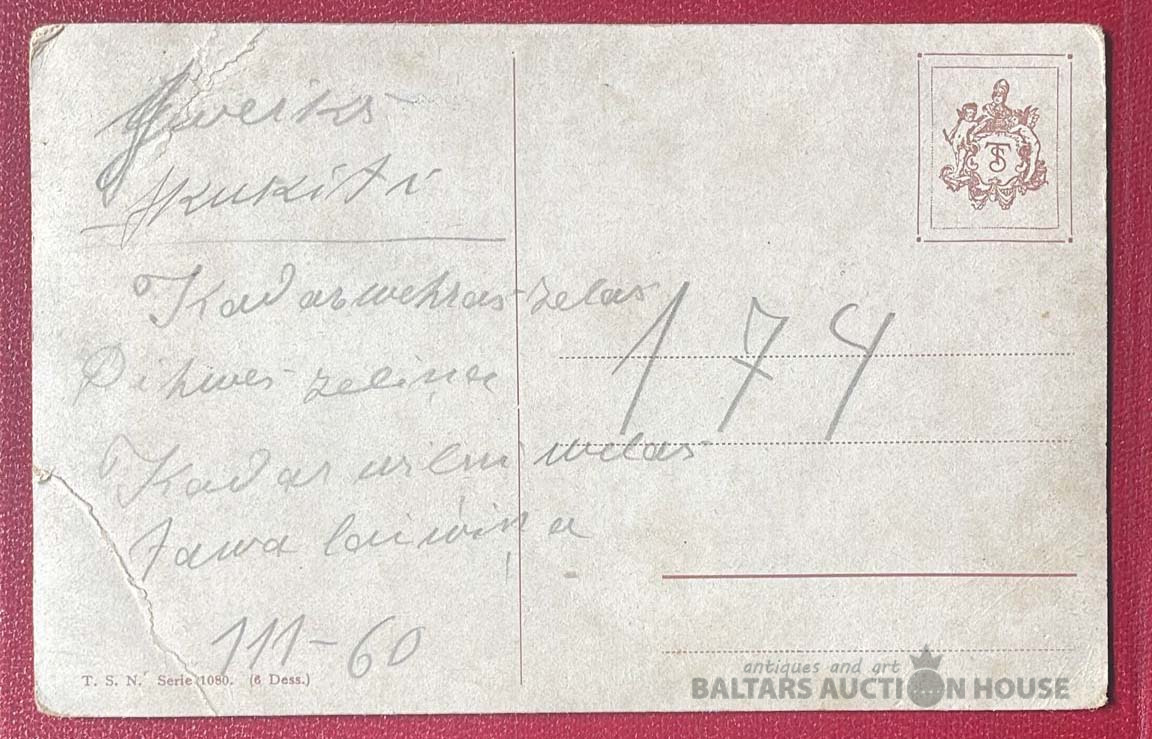 Sweiks
Skukīti
Kad as wehras zelas
Pihwes zeliņa
Kad as wilni welas
Tawa laiwiņa
174
111-60
T. S. N. Serie 1080. (6 Dess.)
TS
antiques and art
BALTARS AUCTION HOUSE